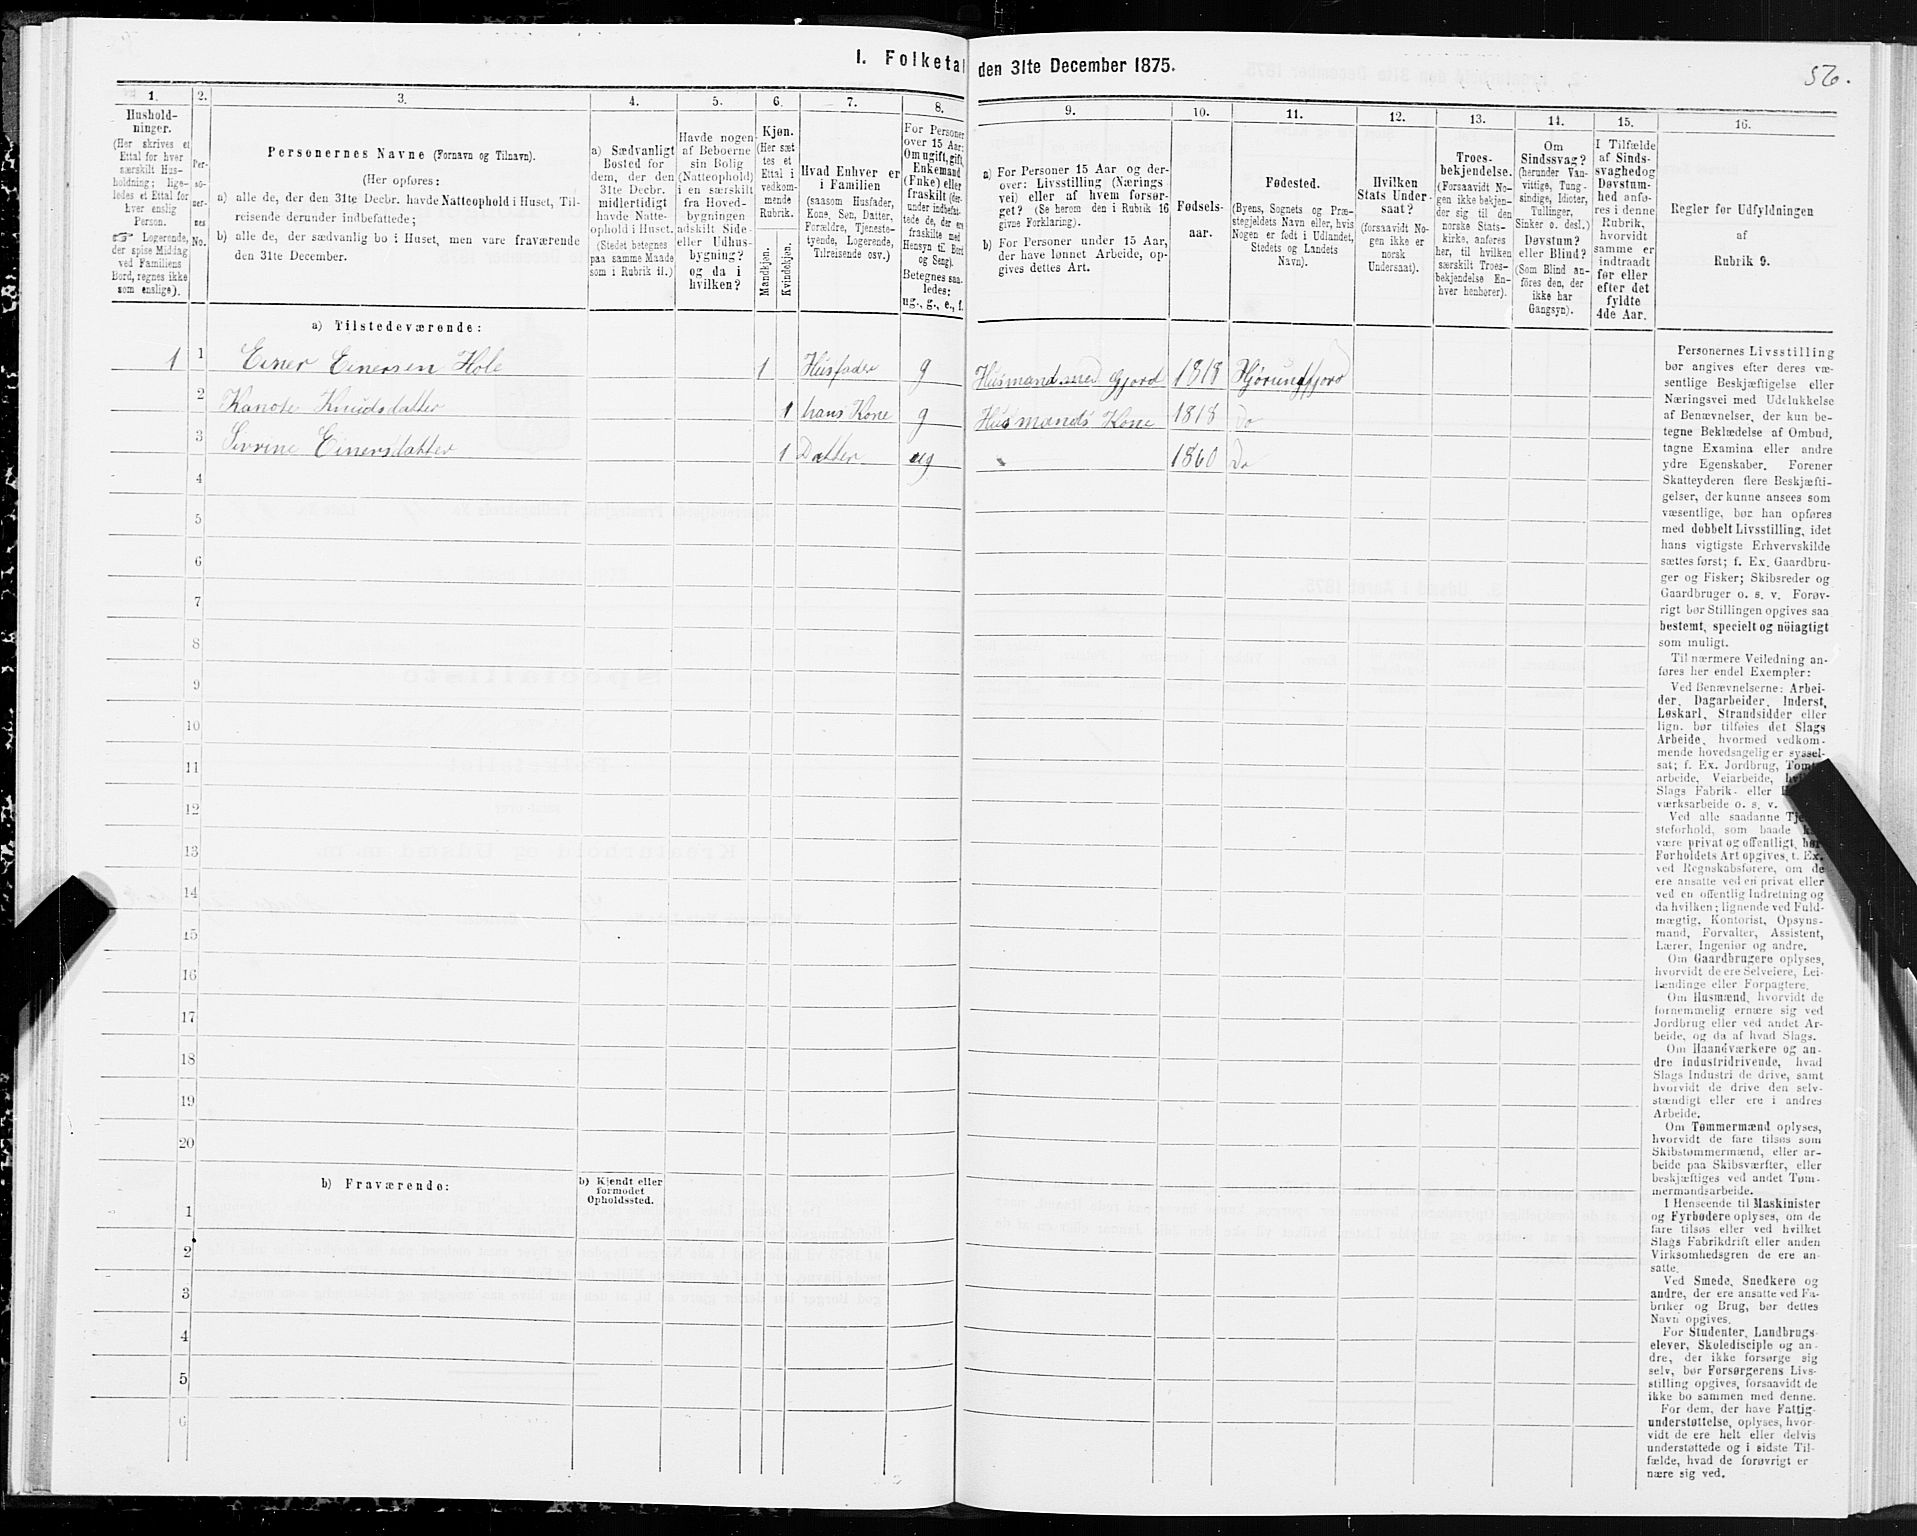 I. Folketal den 31te December 1875.
56.
1.
Hushold-
ninger.
(Her skrives et
Ettal for hver
særskilt Hus-
holdning; lige-
ledes et Ettal for
hver enslig
Person.
☞ Logerende,
der spise Middag
ved Familiens
Bord, regnes ikke
som enslige).
2.
Per-
so-
ner-
nes
No.
3.
Personernes Navne (Fornavn og Tilnavn).
(Her opføres:
a) alle de, der den 31te Decbr. havde Natteophold i Huset, Til-
reisende derunder indbefattede;
b) alle de, der sædvanlig bo i Huset, men vare fraværende
den 31te December.
4.
a) Sædvanligt
Bosted for
dem, der den
31te Decbr.
midlertidigt
havde Natte-
ophold i Huset.
(Stedet betegnes
paa samme Maade
som i Rubrik 11.)
5.
Havde nogen
af Beboerne
sin Bolig
(Natteophold)
i en særskilt
fra Hoved-
bygningen
adskilt Side-
eller Udhus-
bygning?
og da i
hvilken?
6.
Kjøn.
(Her sæt-
tes et
Ettal i
vedkom-
mende
Rubrik.
Mandkjøn.
Kvindekjøn.
7.
Hvad Enhver er
i Familien
(saasom Husfader,
Kone, Søn, Datter,
Forældre, Tjeneste-
tyende, Logerende,
Tilreisende osv.)
8.
For Personer
over 15 Aar:
Om ugift, gift,
Enkemand
(Enke) eller
fraskilt (der-
under indbefat-
tede de, der ere
fraskilte med
Hensyn til Bord
og Seng).
Betegnes saa-
ledes:
ug., g., e., f.
9.
a) For Personer 15 Aar og der-
over: Livsstilling (Nærings
vei) eller af hvem forsør-
get? (Se herom den i Rubrik 16
givne Forklaring).
b) For Personer under 15 Aar,
der have lønnet Arbeide, op-
gives dettes Art.
10.
Fødsels-
aar.
11.
Fødested.
(Byens, Sognets og Præ-
stegjeldets Navn eller, hvis
Nogen er født i Udlandet,
Stedets og Landets
Navn).
12.
Hvilken
Stats Under-
saat?
(forsaavidt No-
gen ikke er
norsk
Undersaat).
13.
Troes-
bekjendelse.
(Forsaavidt No-
gen ikke bekjen-
der sig til den
norske Stats-
kirke, anføres
her, til hvilken
særskilt Troes-
bekjendelse En-
hver henhører).
14.
Om
Sindssvag?
(herunder Van-
vittige, Tung-
sindige, Idioter,
Tullinger,
Sinker o. desl.)
Døvstum?
eller Blind?
(Som Blind an-
føres den, der
ikke har
Gangsyn).
15.
I Tilfælde
af Sinds-
svaghed og
Døvstum-
hed anfø-
res i denne
Rubrik,
hvorvidt
samme er
indtraadt
før eller
efter det
fyldte
4de Aar.
16.
Regler før Udfyldningen
af
Rubrik 9.
a) Tilstedeværende:
1 1 Einer Einersen Hole 1 Husfader g Husmand med Gjord 1818 Hjørundfjord
2 Kanote Knudsdatter 1 hans Kone g Husmands Kone 1818 Do
3 Sivrine Einersdatter 1 Datter ug 1860 Do
4
5
6
7
8
9
10
11
12
13
14
15
16
17
18
19
20
b) Fraværende:
b) Kjendt eller
formodet
Opholdssted.
1
2
3
4
5
6
Personernes Livsstilling
bør angives efter deres væ-
sentlige Beskjæftigelse eller
Næringsvei med Udelukkelse
af Benævnelser, der kun be-
tegne Beklædelse af Ombud,
tagne Examina eller andre
ydre Egenskaber. Forener
Skatteyderen flere Beskjæfti-
gelser, der kunne ansees som
væsentlige, bør han opføres
med dobbelt Livsstilling, idet
hans vigtigste Erhvervskilde
sættes først; f. Ex. Gaardbru-
ger og Fisker; Skibsreder og
Gaardbruger o. s. v. Forøv-
rigt bør Stillingen opgives saa
bestemt, specielt og nöiagtigt
som muligt.
Til nærmere Veiledning an-
føres her endel Exempler:
Ved Benævnelserne: Arbei-
der, Dagarbeider, Inderst,
Løskarl, Strandsidder eller
lign. bør tilføies det Slags
Arbeide, hvormed vedkom-
mende hovedsagelig er syssel-
sat; f. Ex. Jordbrug, Tomte-
arbeide, Veiarbeide,
Slags Fabrik- eller
værksarbeide o. s. v.
Ved alle saadanne Tje-
steforhold, som baade
være privat og offentligt, bør
Forholdets Art opgives, t. Ex.
ved Regnskabsførere, om de
ere ansatte ved en privat eller
ved en offentlig Indretning og
da hvilken; lignende ved Fuld-
mægtig, Kontorist, Opsyns-
mand, Forvalter, Assistent,
Lærer, Ingeniør og andre.
Om Gaardbrugere oplyses,
hvorvidt de ere Selveiere, Lei-
lændinge eller Forpagtere.
Om Husmænd, hvorvidt de
fornemmelig ernære sig ved
Jordbrug eller ved andet Ar-
beide, og da af hvad Slags.
Om Haandværkere og an-
dre industridrivende, hvad
Slags Industri de drive, samt
hvorvidt de drive den selv-
stændigt eller ere i andres
Arbeide.
Om Tømmermænd oplyses,
hvorvidt de fare tilsøs som
Skibstømmermænd, eller ar-
beide paa Skibsværfter, eller
beskjæftiges ved andet Tøm-
mermandsarbeide.
I Henseende til Maskinister
og Fyrbødere oplyses, om de
fare tilsøs eller ved hvilket
Slags Fabrikdrift eller anden
Virksomhedsgren de ere an-
satte.
Ved Smede, Snedkere og
andre, der ere ansatte ved Fa-
briker og Brug, bør dettes
Navn opgives.
For Studenter, Landbrugs-
elever, Skoledisciple og an-
dre, der ikke forsørge sig
selv, bør Forsørgerens Livs-
stilling opgives, forsaavidt de
ikke bo sammen med denne.
For dem, der have Fattig-
understøttelse, oplyses, hvor-
vidt de ere helt eller delvis
understøttede og i sidste Til-
fælde, hvad de forøvrigt er
nære sig ved.